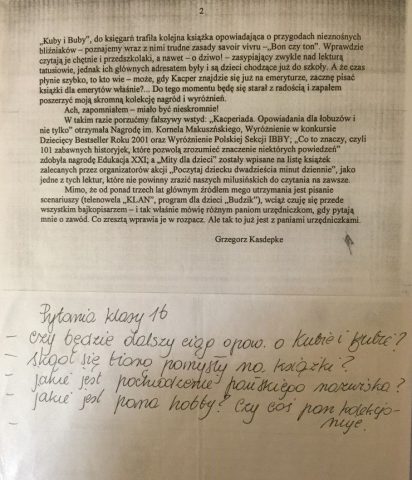 2
„Kuby i Buby", do księgarń trafiła kolejna książka opowiadająca o przygodach nieznośnych
bliźniaków – poznajemy wraz z nimi trudne zasady savoir vivru – „Bon czy ton". Wprawdzie
czytają je chętnie i przedszkolaki, a nawet – o dziwo! – zasypiający zwykle nad lekturą
tatusiowie, jednak ich głównych adresatem były i są dzieci chodzące już do szkoły. A że czas
płynie szybko, to kto wie – może, gdy Kacper znajdzie się już na emeryturze, zacznę pisać
książki dla emerytów właśnie?... Do tego momentu będę się starał z radością i zapałem
poszerzyć moją skromną kolekcję nagród i wyróżnień.
Ach, zapomniałem – miało być nieskromnie!
W takim razie porzućmy fałszywy wstyd: „Kacperiada. Opowiadania dla łobuzów i
nie tylko" otrzymała Nagrodę im. Kornela Makuszyńskiego, Wyróżnienie w konkursie
Dziecięcy Bestseller Roku 2001 oraz Wyróżnienie Polskiej Sekcji IBBY; „Co to znaczy, czyli
101 zabawnych historyjek, które pozwolą zrozumieć znaczenie niektórych powiedzeń"
zdobyła nagrodę Edukacja XXI; a „Mity dla dzieci" zostały wpisane na listę książek
zalecanych przez organizatorów akcji „Poczytaj dziecku dwadzieścia minut dziennie", jako
jedne z tych lektur, które nie powinny zrazić naszych milusińskich do czytania na zawsze.
Mimo, że od ponad trzech lat głównym źródłem mego utrzymania jest pisanie
scenariuszy (telenowela „KLAN", program dla dzieci „Budzik"), wciąż czuję się przede
wszystkim bajkopisarzem – i tak właśnie mówię różnym paniom urzędniczkom, gdy pytają
mnie o zawód. Co zresztą wprawia je w rozpacz. Ale tak to już jest z paniami urzędniczkami.
Grzegorz Kasdepke
Pytania klasy 1b
– czy będzie dalszy ciąg opow. o Kubie i Bubie?
– skąd się biorą pomysły na książki?
– jakie jest pochodzenie pańskiego nazwiska?
– jakie jest pana hobby? Czy coś pan kolekcjo-
nuje.
–